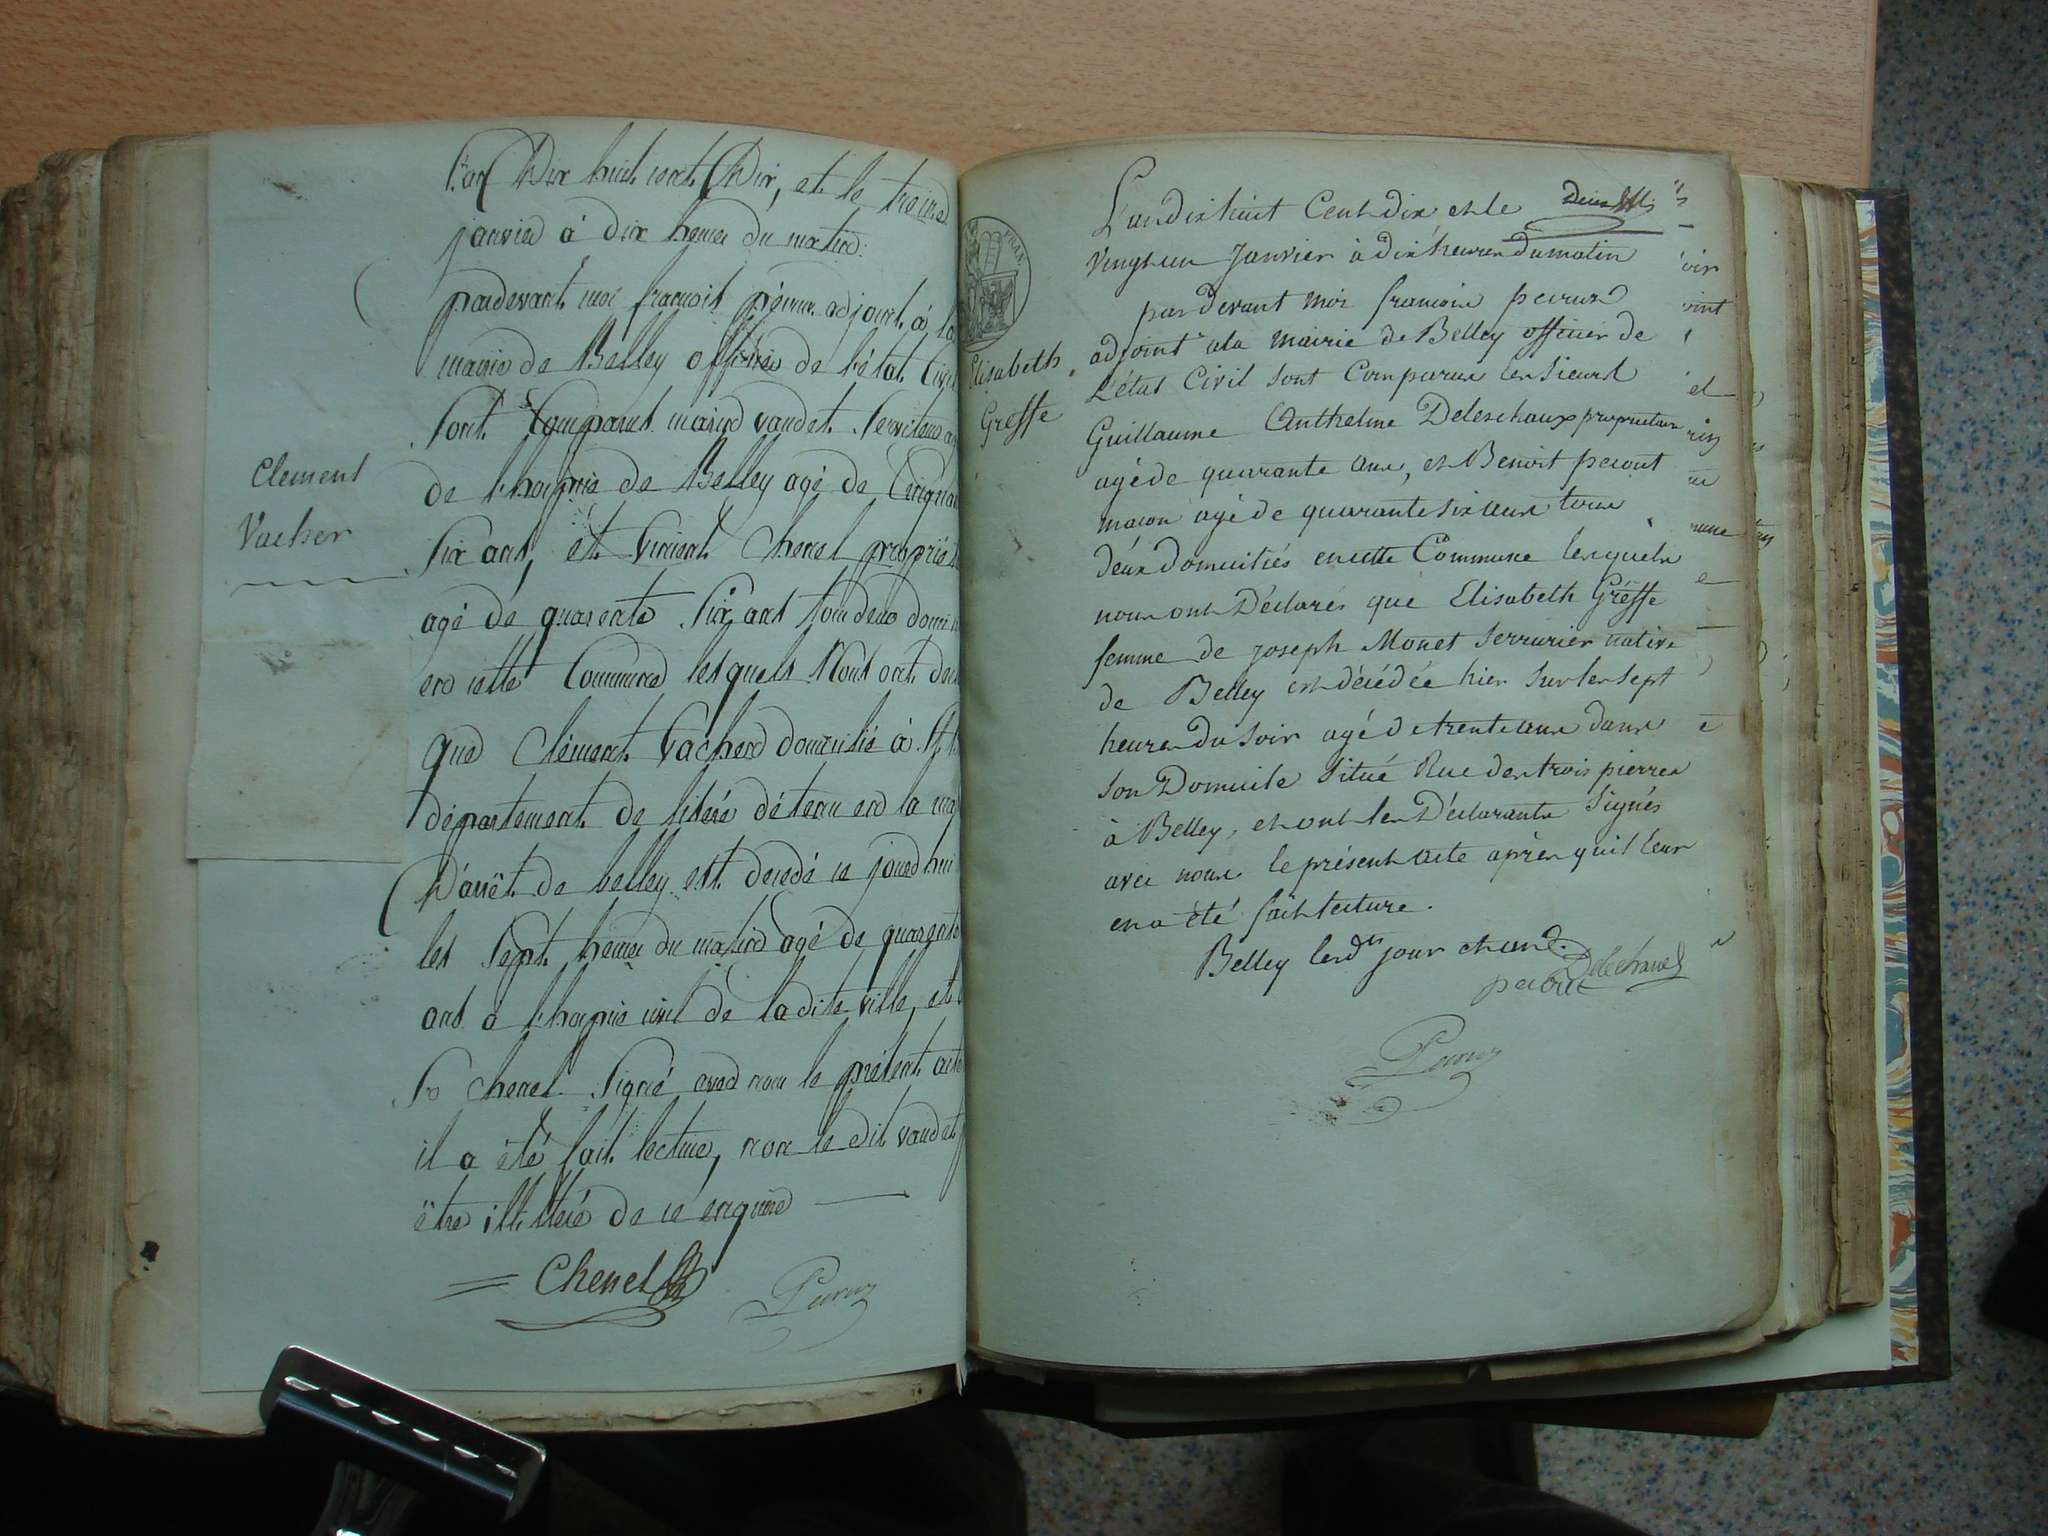 Clement
Vacher
l'an Dix huit cent Dix, et le treize
janvier à dix heures du matin:
pardevant moi françois péruz adjoint à la
mairie de Belley officier de l'état Civil
Sont Comparus vaudet Serviteur
de l'hospice de Belley agé de Cinquante
Six ans, et Vincent Chenel proprié
agé de quarente Six ans tous deux domi
en cette Commune lesquels Nous ont décl
que Clément Vacher domicilié à St
département de l'isère détenu en la mai
D'arrêt de belley est décedé ce jourd'hui
les Sept heures du matin agé de quarente
ans à l'hospice civil de la dite ville, et
Sr Chenel Signé avec nous le présent acte
il a été fait lecture, non le dit vaudet p
être illitéré de ce enquis
Chenel
Peruz
FRAN.
Elisabeth
Greffe
L'an dix huit Cent dix et le
vingt un Janvier à dix heures du matin
par devant moi françois peruz
adjoint a la mairie de Belley officier de
L'état Civil Sont Comparus les Sieurs
Guillaume Anthelme Deleschaux proprietaire
agé de quarante ans, et Benoit perout
maçon agé de quarante six ans tous
deux domiciliés en cette Commune lesquels
nous ont Déclarés que Elisabeth Gréffe
femme de joseph Monet Serrurier native
de Belley est décédée hier sur les sept
heures du Soir agé de trente ans dans
Son Domicile Situé Rue des trois pierres
à Belley, et ont les Déclarants Signés
avec nous le présent acte après qu'il leur
en a été fait lecture.
Belley les dts jour et an.
Delechaux
perout
Peruz